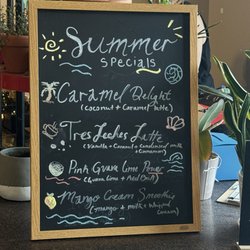 Summer
Specials
Caramel Delight
(coconut + Caramel latte)
Tres Leches Latte
(Vanilla + Caramel + Condensed milk
+ Cinnamon)
Pink Guava Lime Power
(Guava, lime + Red Bull)
Mango Cream Smoothie
(mango + milk + whipped
cream)